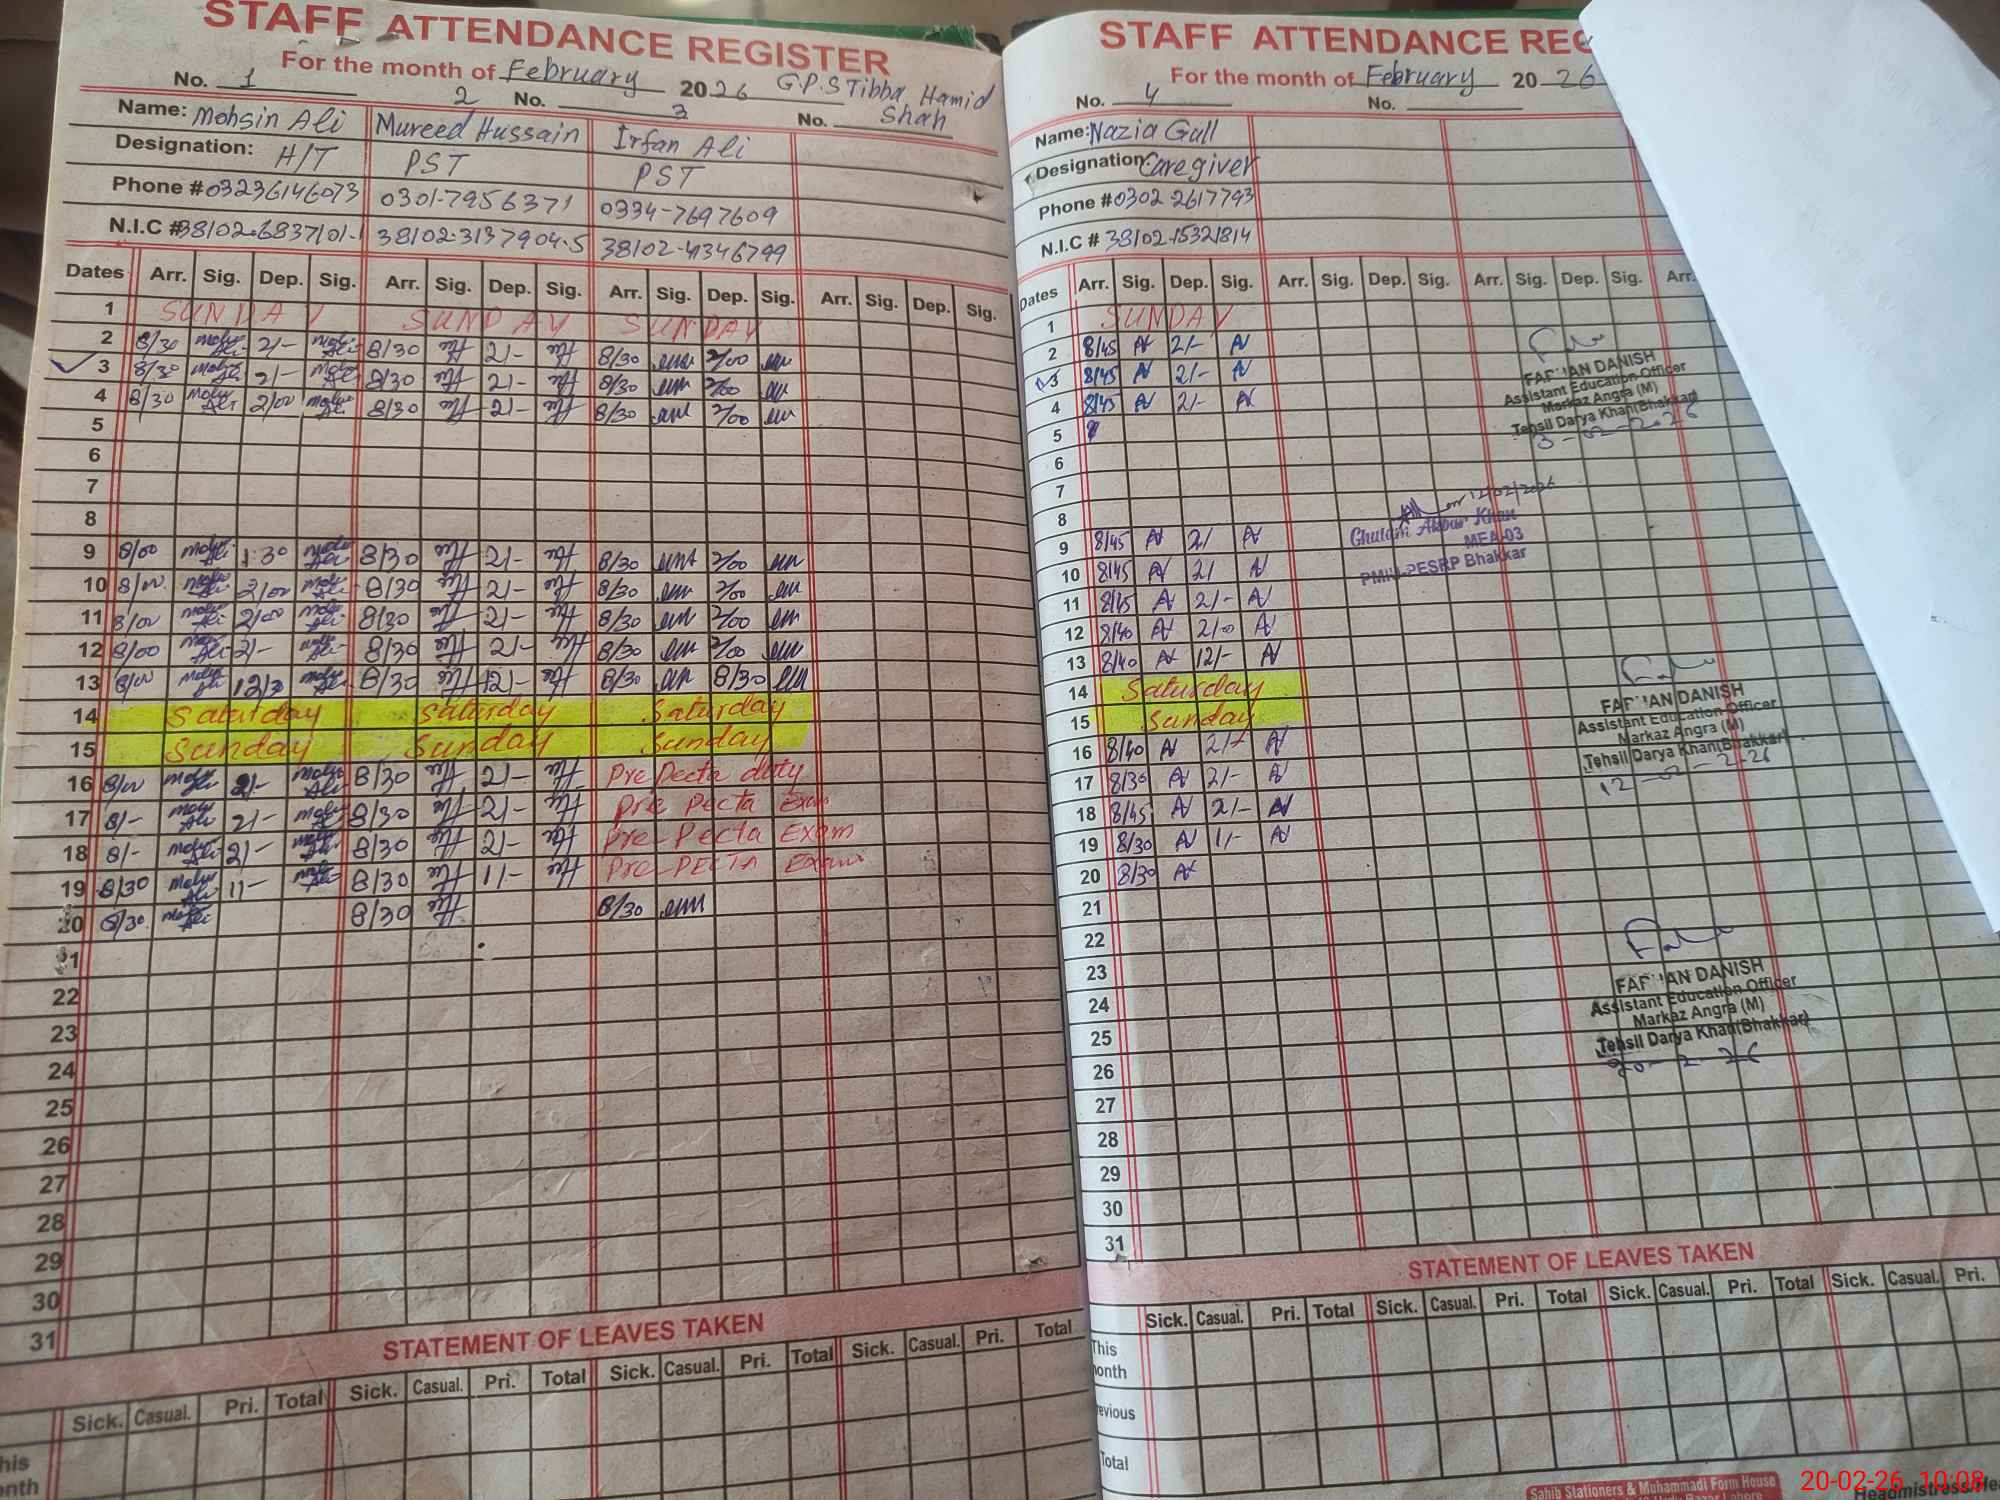 STAFF ATTENDANCE REGISTER
For the month of February 2026 G.P.S Tibba Hamid Shah
No. 1 2 No. 3 No.
Name: Mohsin Ali Mureed Hussain Irfan Ali
Designation: H/T PST PST
Phone # 03236146073 0301-7956371 0334-7697609
N.I.C # 38102-6837101-1 38102-3137904-5 38102-4346799
Dates Arr. Sig. Dep. Sig. Arr. Sig. Dep. Sig. Arr. Sig. Dep. Sig. Arr. Sig. Dep. Sig.
1 SUNDAY SUNDAY SUNDAY
2 8/30 2/- 8/30 2/- 8/30 2/00
3 8/30 2/- 8/30 2/- 8/30 2/00
4 8/30 2/00 8/30 2/- 8/30 2/00
5
6
7
8
9 8/00 1:30 8/30 2/- 8/30 2/00
10 8/00 2/00 8/30 2/- 8/30 2/00
11 8/00 2/00 8/30 2/- 8/30 2/00
12 8/00 2/- 8/30 2/- 8/30 2/00
13 8/00 8/30 12/- 8/30 8/30
14 Saturday Saturday Saturday
15 Sunday Sunday Sunday
16 8/00 2/- 8/30 2/- Pre Pecta duty
17 8/- 2/- 8/30 2/- Pre Pecta Exam
18 8/- 2/- 8/30 2/- Pre-Pecta Exam
19 8/30 1/- 8/30 1/- Pre-PECTA Exam
20 8/30 8/30 8/30
21
22
23
24
25
26
27
28
29
30
31
STATEMENT OF LEAVES TAKEN
Sick. Casual. Pri. Total Sick. Casual. Pri. Total Sick. Casual. Pri. Total Sick. Casual. Pri. Total
his
nth
STAFF ATTENDANCE REG
For the month of February 2026
No. 4 No.
Name: Nazia Gull
Designation: Caregiver
Phone # 0302 2617793
N.I.C # 38102-15321814
Dates Arr. Sig. Dep. Sig. Arr. Sig. Dep. Sig. Arr. Sig. Dep. Sig. Arr.
1 SUNDAY
2 8/45 2/-
3 8/45 2/-
4 8/45 2/-
5
6
7
8
9 8/45 2/
10 8/45 2/
11 8/45 2/-
12 8/40 2/00
13 8/40 12/-
14 Saturday
15 Sunday
16 8/40 2/-
17 8/30 2/-
18 8/45 2/-
19 8/30 1/-
20 8/30
21
22
23
24
25
26
27
28
29
30
31
FARHAN DANISH
Assistant Education Officer
Markaz Angra (M)
Tehsil Darya Khan(Bhakkar)
3-02-2026
on 12/02/2026
Ghulam Akbar Khan
MEA-03
PMIU-PESRP Bhakkar
FARHAN DANISH
Assistant Education Officer
Markaz Angra (M)
Tehsil Darya Khan(Bhakkar)
12-02-2026
FARHAN DANISH
Assistant Education Officer
Markaz Angra (M)
Tehsil Darya Khan(Bhakkar)
20-2-26
STATEMENT OF LEAVES TAKEN
Sick. Casual. Pri. Total Sick. Casual. Pri. Total Sick. Casual. Pri. Total Sick. Casual. Pri.
This
onth
revious
Total
Sahib Stationers & Muhammadi Form House
20-02-26 10:08